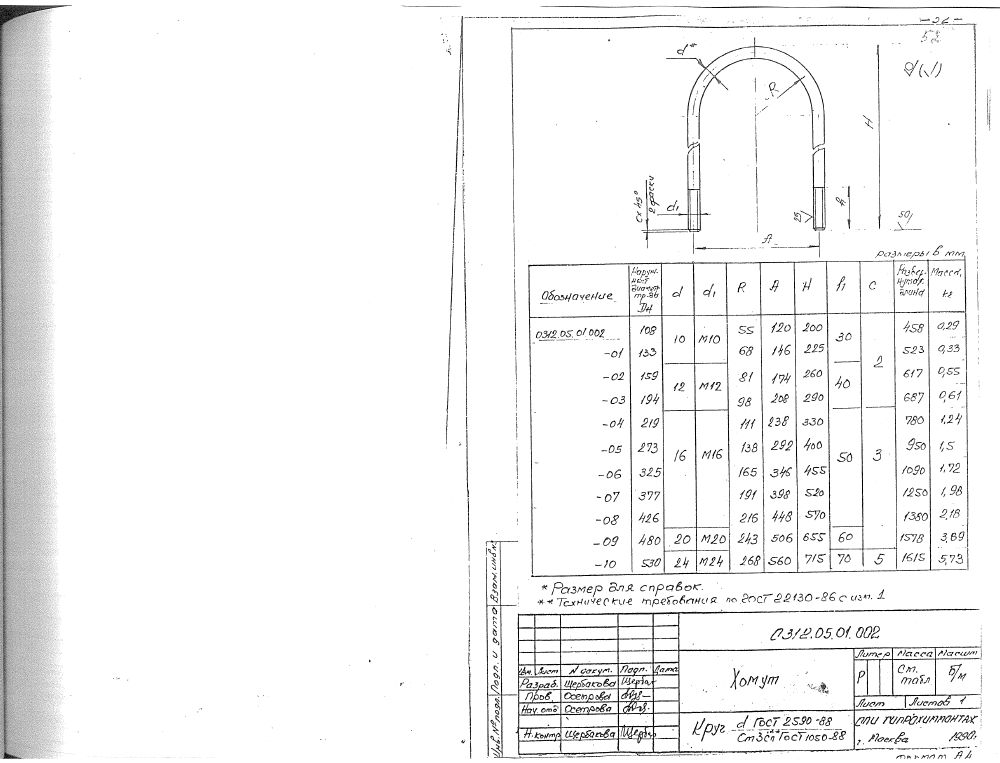 52
d*
R
H
h
d₁
c×45°
2 фаски
25
50
A
размеры в мм
Обозначение Наружный диаметр трубы Dн d d₁ R A H h c Развернутая длина Масса, кг
0312.05.01.002 108 10 М10 55 120 200 30 2 458 0,29
-01 133 68 146 225 523 0,33
-02 159 12 М12 81 174 260 40 617 0,55
-03 194 98 208 290 687 0,61
-04 219 16 М16 111 238 330 50 3 780 1,24
-05 273 138 292 400 950 1,5
-06 325 165 346 455 1090 1,72
-07 377 191 398 520 1250 1,98
-08 426 216 448 570 1380 2,18
-09 480 20 М20 243 506 655 60 1578 3,89
-10 530 24 М24 268 560 715 70 5 1615 5,73
* Размер для справок.
** Технические требования по ГОСТ 22130-86 с изм. 1
0312.05.01.002
Изм. Лист N докум. Подп. Дата
Разраб. Щербакова
Пров. Осетрова
Нач. отд Осетрова
Н.контр Щербакова
Хомут
Литер Масса Масшт
Р См. табл Б/м
Лист Листов 1
Круг d ГОСТ 2590-88
Ст3сп** ГОСТ 1050-88
г. Москва 1990г.
Формат А4
Инв.№ подл. Подп. и дата Взам.инв.№